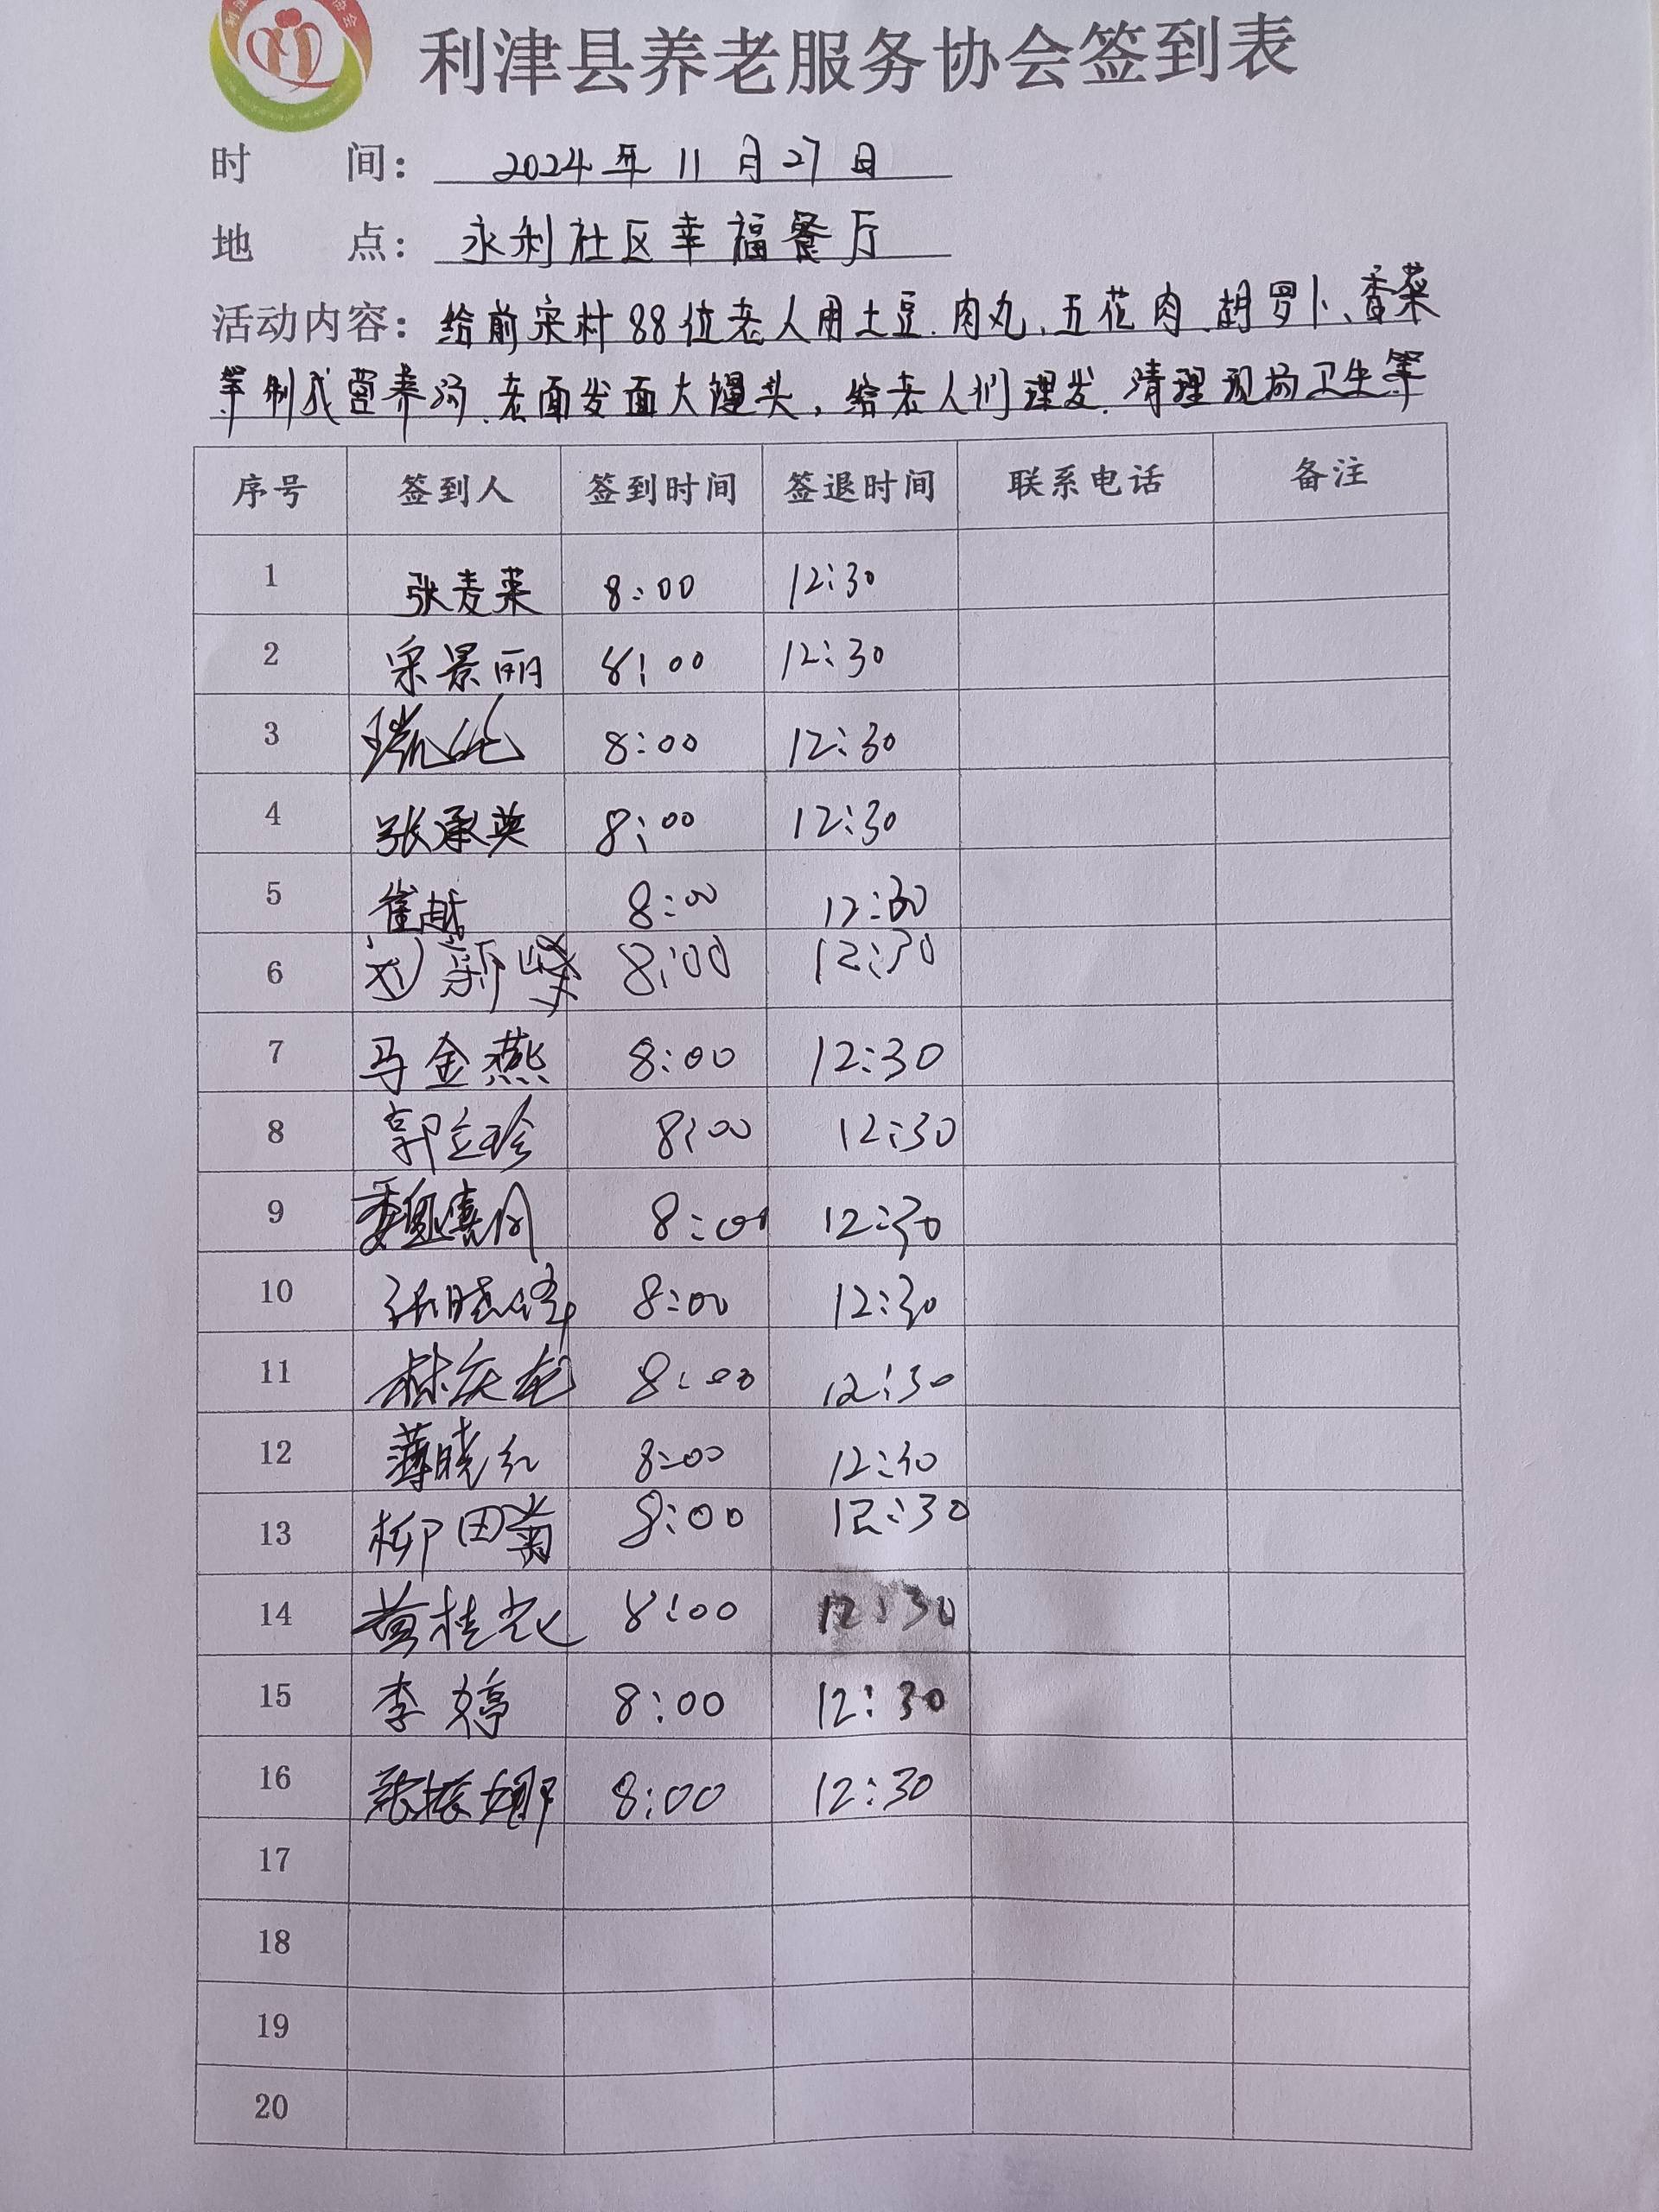 利津县养老服务协会签到表
时 间: 2024年11月27日
地 点: 永利社区幸福餐厅
活动内容: 给前宋村88位老人用土豆、肉丸、五花肉、胡罗卜、香菜
等制成营养汤、老面发面大馒头,给老人们理发、清理现场卫生等
序号 签到人 签到时间 签退时间 联系电话 备注
1 张麦菜 8:00 12:30
2 宋景丽 8:00 12:30
3 8:00 12:30
4 张承英 8:00 12:30
5 崔越 8:00 12:30
6 刘新峰 8:00 12:30
7 马金燕 8:00 12:30
8 郭立珍 8:00 12:30
9 8:00 12:30
10 张晓峰 8:00 12:30
11 8:00 12:30
12 薄晓红 8:00 12:30
13 柳田菊 8:00 12:30
14 8:00 12:30
15 李婷 8:00 12:30
16 张振娜 8:00 12:30
17
18
19
20